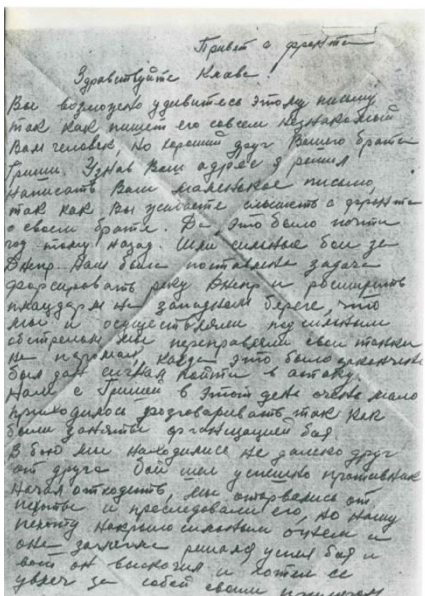 Привет с фронта
Здравствуйте Клава!
Вы возможно удивитесь этому письму
так как пишет его совсем незнакомый
Вам человек, но хороший друг Вашего брата
Гриши. Узнав Ваш адрес я решил
написать Вам маленькое письмо,
так как Вы услышать с фронта
о своем брате. Да, это было почти
год тому назад. Шли сильные бои за
Днепр. Нам была поставлена задача
форсировать реку Днепр и расширить
плацдарм на западном береге, что
мы и осуществляли под сильным
обстрелом мы переправляли свои танки
на паромах, когда это было закончено
был дан сигнал пойти в атаку.
Нам с Гришей в этот день очень мало
приходилось разговаривать, так как
были заняты организацией боя.
В бою мы находились не далеко друг
от друга бой шел успешно противник
начал отходить, мы оторвались от
пехоты и преследовали его, но нашу
пехоту накрыло сильным огнем и
она залегла решался успех боя и
вот он выскочил и хотел ее
увлеч за собой своим